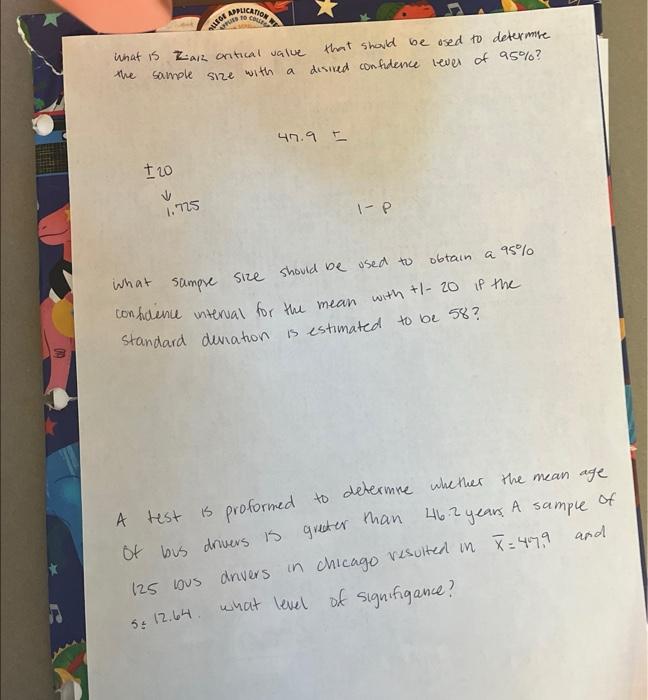 LLEGE APPLICATION
APPLIED TO COLLEGE
what is Zα/2 critical value that should be used to determine
the sample size with a disired confidence level of 95%?
47.9 ±
±20
↓
1.725
1-p
what sample size should be used to obtain a 95%
confidence interval for the mean with +/- 20 if the
standard deviation is estimated to be 58?
A test is proformed to determine whether the mean age
of bus drivers is greater than 46.2 years. A sample of
125 bus drivers in chicago resulted in x̄=47.9 and
s= 12.64. what level of signifigance?